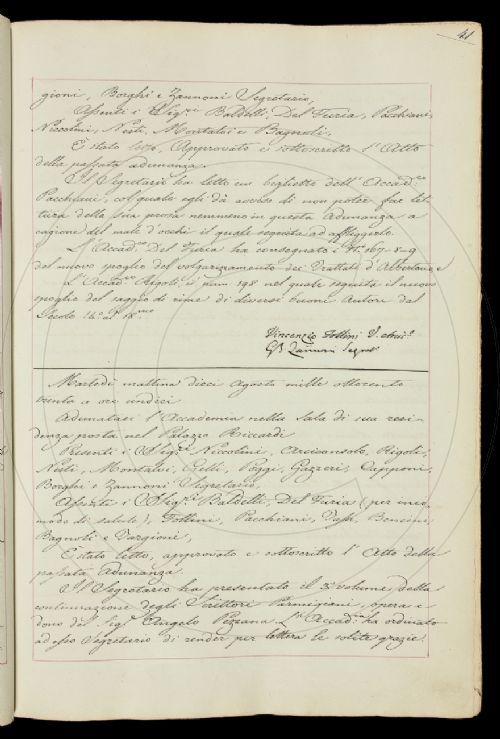 41
gioni, Borghi e Zannoni Segretario,
Assenti i Sig.ri Baldelli, Del Furia, Pacchiani,
Niccolini, Nesti, Montalvi e Bagnoli.
È stato letto, Approvato e sottoscritto l'Atto
della passata adunanza.
Il Segretario ha letto un biglietto dell'Accad.co
Pacchiani, col quale egli dà avviso di non poter far let-
tura della sua prosa nemmeno in questa Adunanza a
cagione del male d'occhi il quale seguita ad affliggerlo.
L'Accad.co Del Furia ha consegnato i N.i 167-8-9
del nuovo spoglio del volgarizzamento dei Trattati d'Albertano e
L'Accad.co Rigoli, il num. 198 nel quale seguita il nuovo
spoglio del saggio di rime di diversi buoni Autori dal
Secolo 14.o al 18.mo
Vincenzio Follini V.
G.B. Zannoni Segret.
Martedì mattina dieci Agosto mille ottocento
trenta a ore undici
Adunatasi l'Accademia nella Sala di sua resi-
denza posta nel Palazzo Riccardi
Presenti i Sig.ri Niccolini, Arcangeli, Rigoli,
Nesti, Montalvi, Gelli, Poggi, Gazzeri, Capponi,
Borghi e Zannoni Segretario,
Assenti i Sig.ri Baldelli, Del Furia (per inco-
modo di salute), Follini, Pacchiani, Bencini,
Bagnoli e Targioni,
È stato letto, approvato e sottoscritto l'Atto della
passata Adunanza.
Il Segretario ha presentato il 3.o volume della
continuazione degli Scrittori Parmigiani, opera e
dono del Sig.r Angelo Pezzana. L'Accad.a ha ordinato
ad esso Segretario di render per lettera le solite grazie.